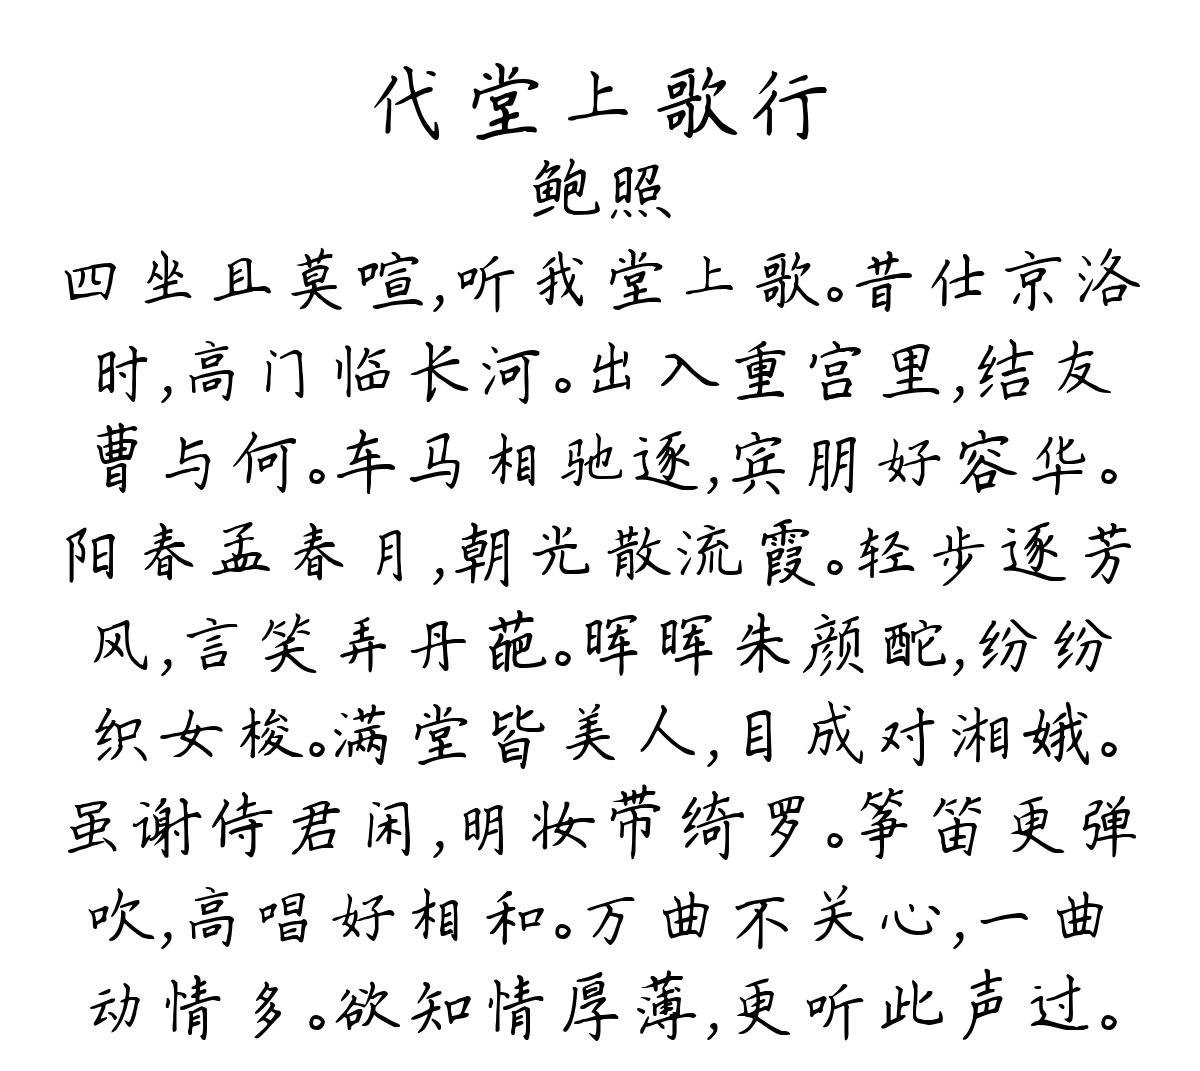 代堂上歌行
鲍照
四坐且莫喧,听我堂上歌。昔仕京洛
时,高门临长河。出入重宫里,结友
曹与何。车马相驰逐,宾朋好容华。
阳春孟春月,朝光散流霞。轻步逐芳
风,言笑弄丹葩。晖晖朱颜酡,纷纷
织女梭。满堂皆美人,目成对湘娥。
虽谢侍君闲,明妆带绮罗。筝笛更弹
吹,高唱好相和。万曲不关心,一曲
动情多。欲知情厚薄,更听此声过。